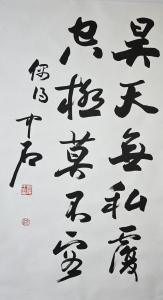 昊天無私覆
極莫不容
偶得
中石